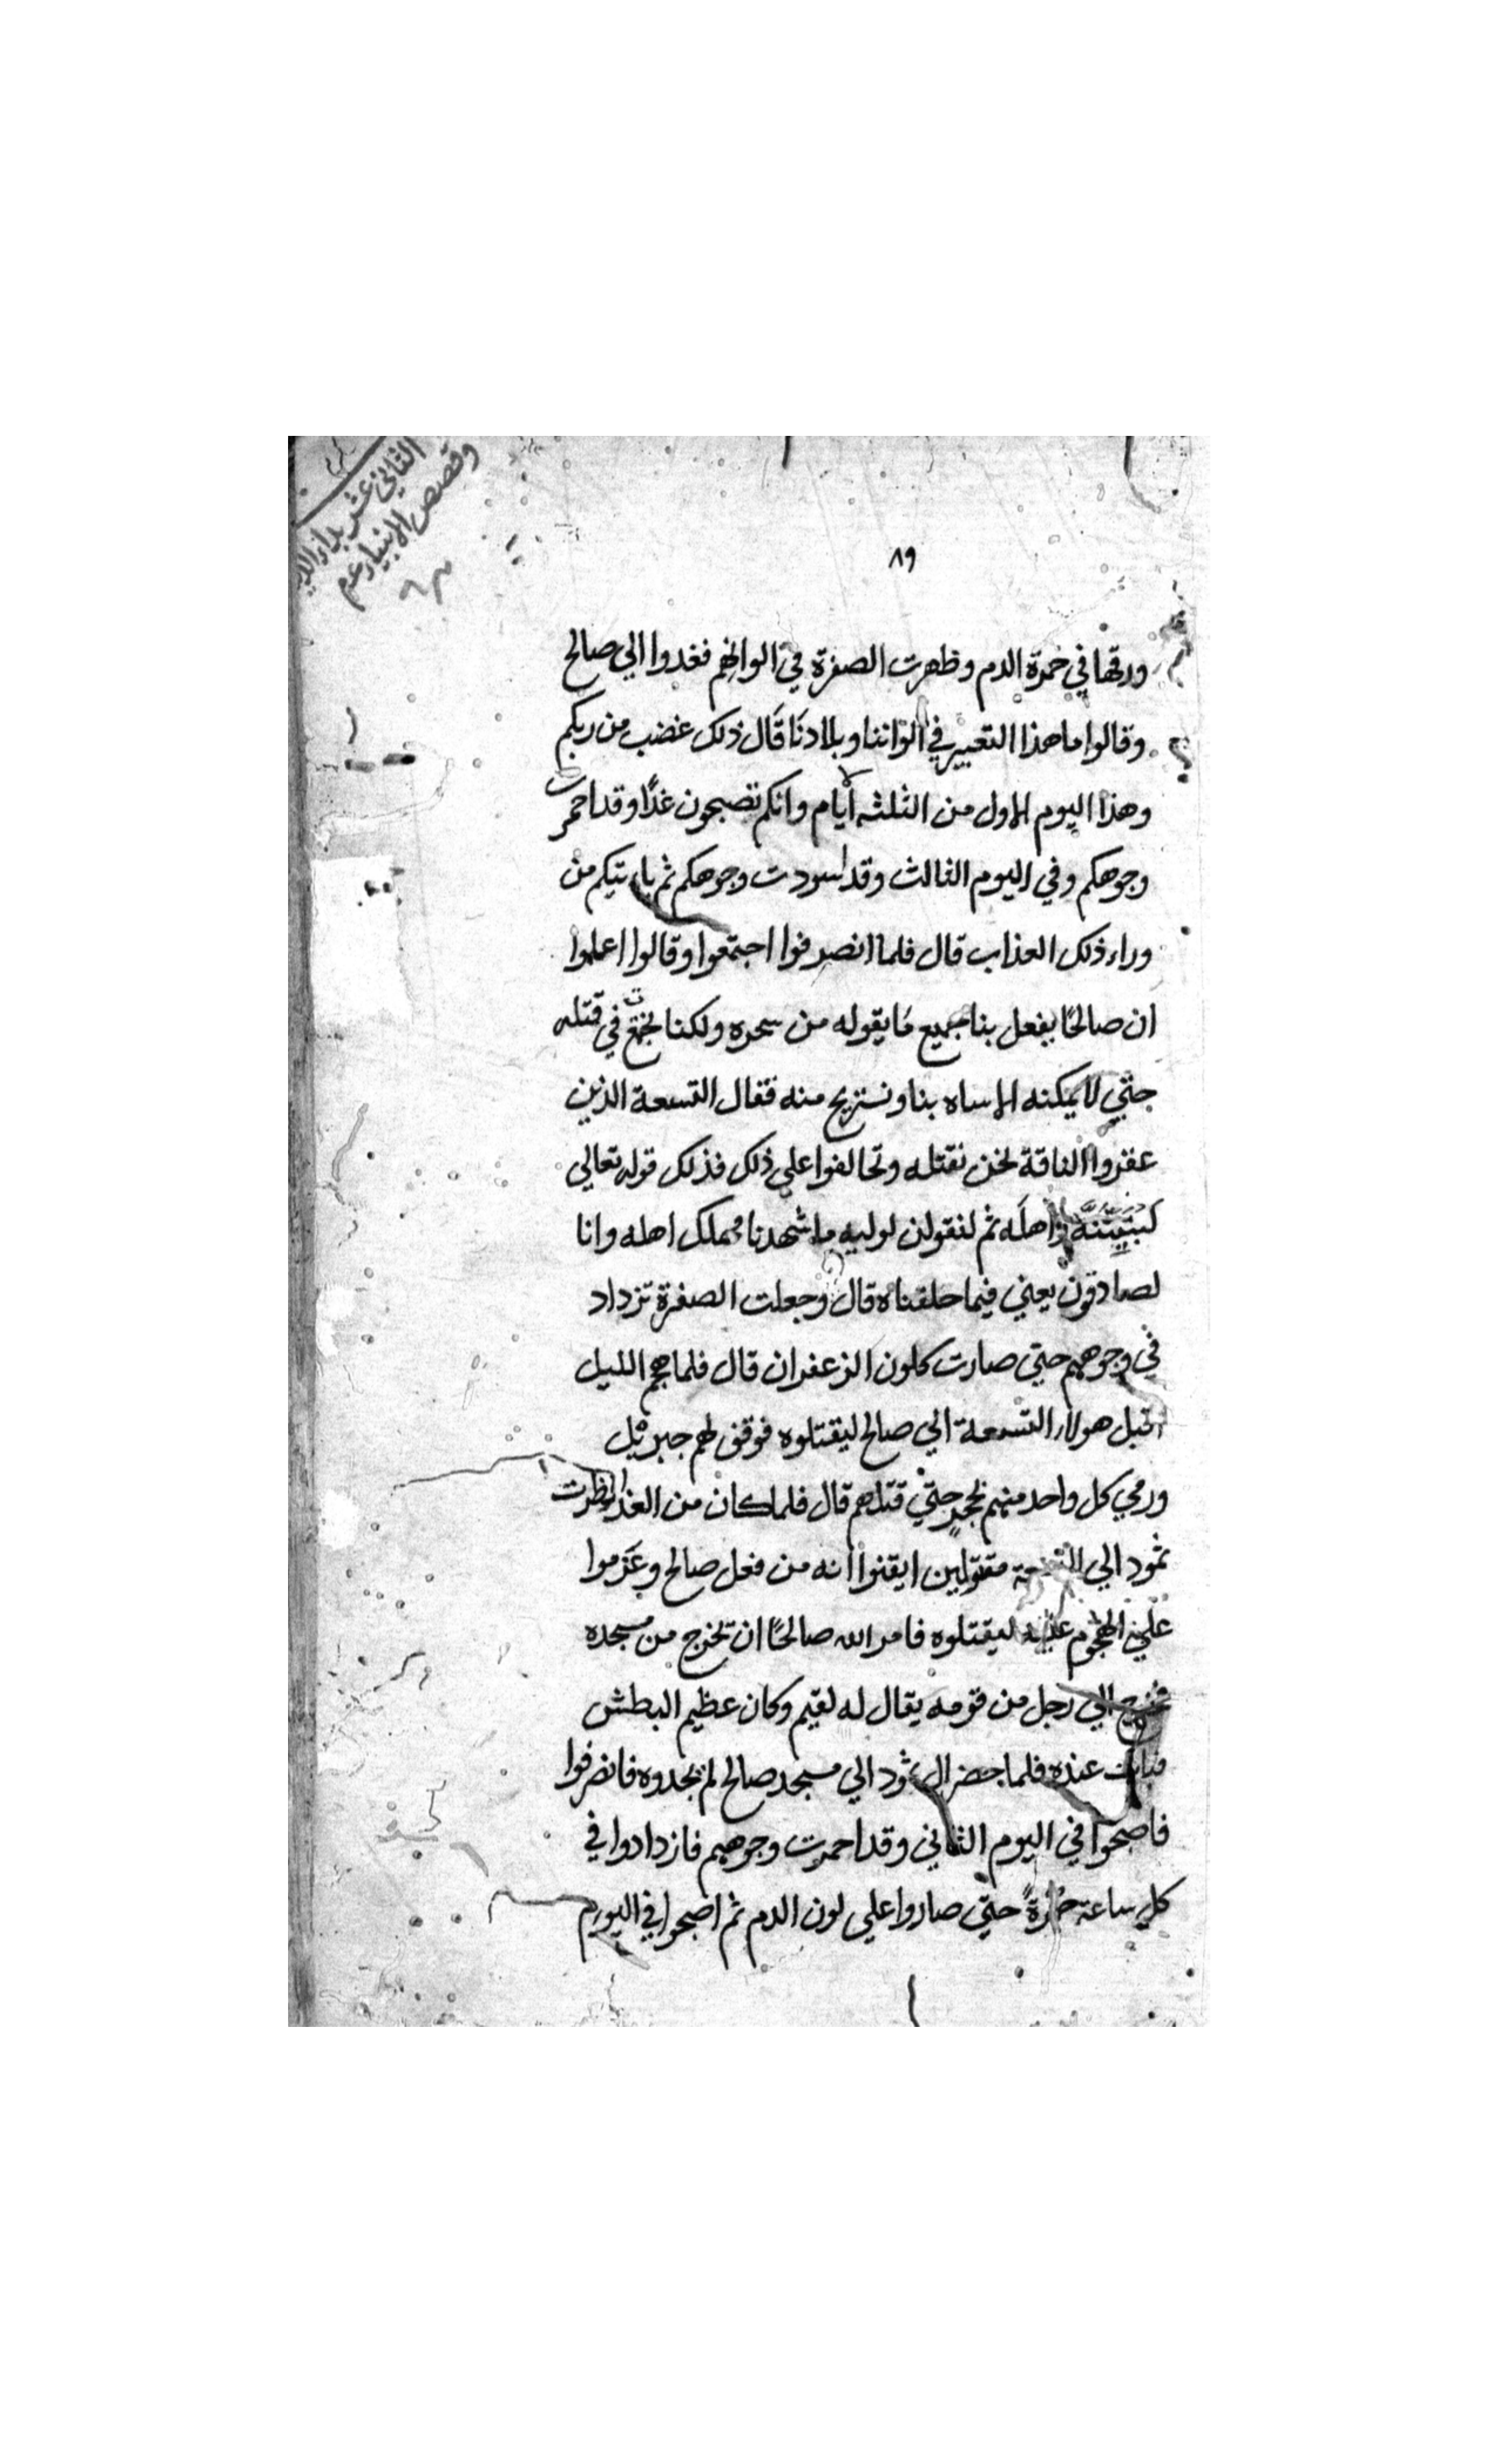 الثاني عشر بداء الد
وقصص الانبياء عم
٨٩
ورقها في حمرة الدم وظهرت الصفرة في الوانهم فغدوا الي صالح
وقالوا ما هذا التغيير في الواننا وبلادنا قال ذلك غضب من ربكم
وهذا اليوم الاول من الثلثه أيام وانكم تصبحون غدًا وقد احمرت
وجوهكم وفي اليوم الثالث وقد اسودت وجوهكم ثم ياءتيكم من
وراء ذلك العذاب قال فلما انصرفوا اجتمعوا وقالوا اعلموا
ان صالحًا يفعل بنا جميع ما يقوله من سحره ولكنا نجتمع في قتله
حتي لا يمكنه الاساه بنا ونستريح منه فقال التسعة الذين
عقروا الناقة نحن نقتله وتحالفوا علي ذلك فذلك قوله تعالي
لنبيتنه واهله ثم لنقولن لوليه ما شهدنا مهلك اهله وانا
لصادقون يعني فيما حلفناه قال وجعلت الصفرة تزداد
في وجوههم حتي صارت كلون الزعفران قال فلما هجم الليل
اقبل هولاء التسعة الي صالح ليقتلوه فوقف لهم جبرئيل
ورمي كل واحد منهم بحجر حتي قتلهم قال فلما كان من الغد نظرت
ثمود الي التسعة مقتولين ايقنوا انه من فعل صالح وعزموا
علي الهجوم عليه ليقتلوه فامر الله صالحًا ان يخرج من مسجده
فخرج الي رجل من قومه يقال له لقيم وكان عظيم البطش
فبات عنده فلما حضر ال ثمود الي مسجد صالح لم يجدوه فانصرفوا
فاصبحوا في اليوم الثاني وقد احمرت وجوههم فازدادوا في
كل ساعة حمرةً حتي صاروا علي لون الدم ثم اصبحوا في اليوم